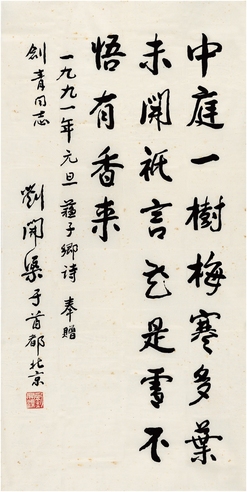 中庭一樹梅寒多葉
未開祇言花是雪不
悟有香来
一九九一年元旦蘇子卿诗奉贈
劍青同志
劉開渠于首都北京